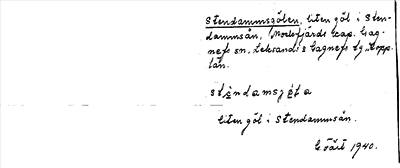 Stendammsgölen, liten göl i Sten-
dammsån, Norsfjärds kap. Gag-
nefs sn, Leksands o Gagnefs tg, Kopp.
län.
liten göl i Stendammsån.
1940.